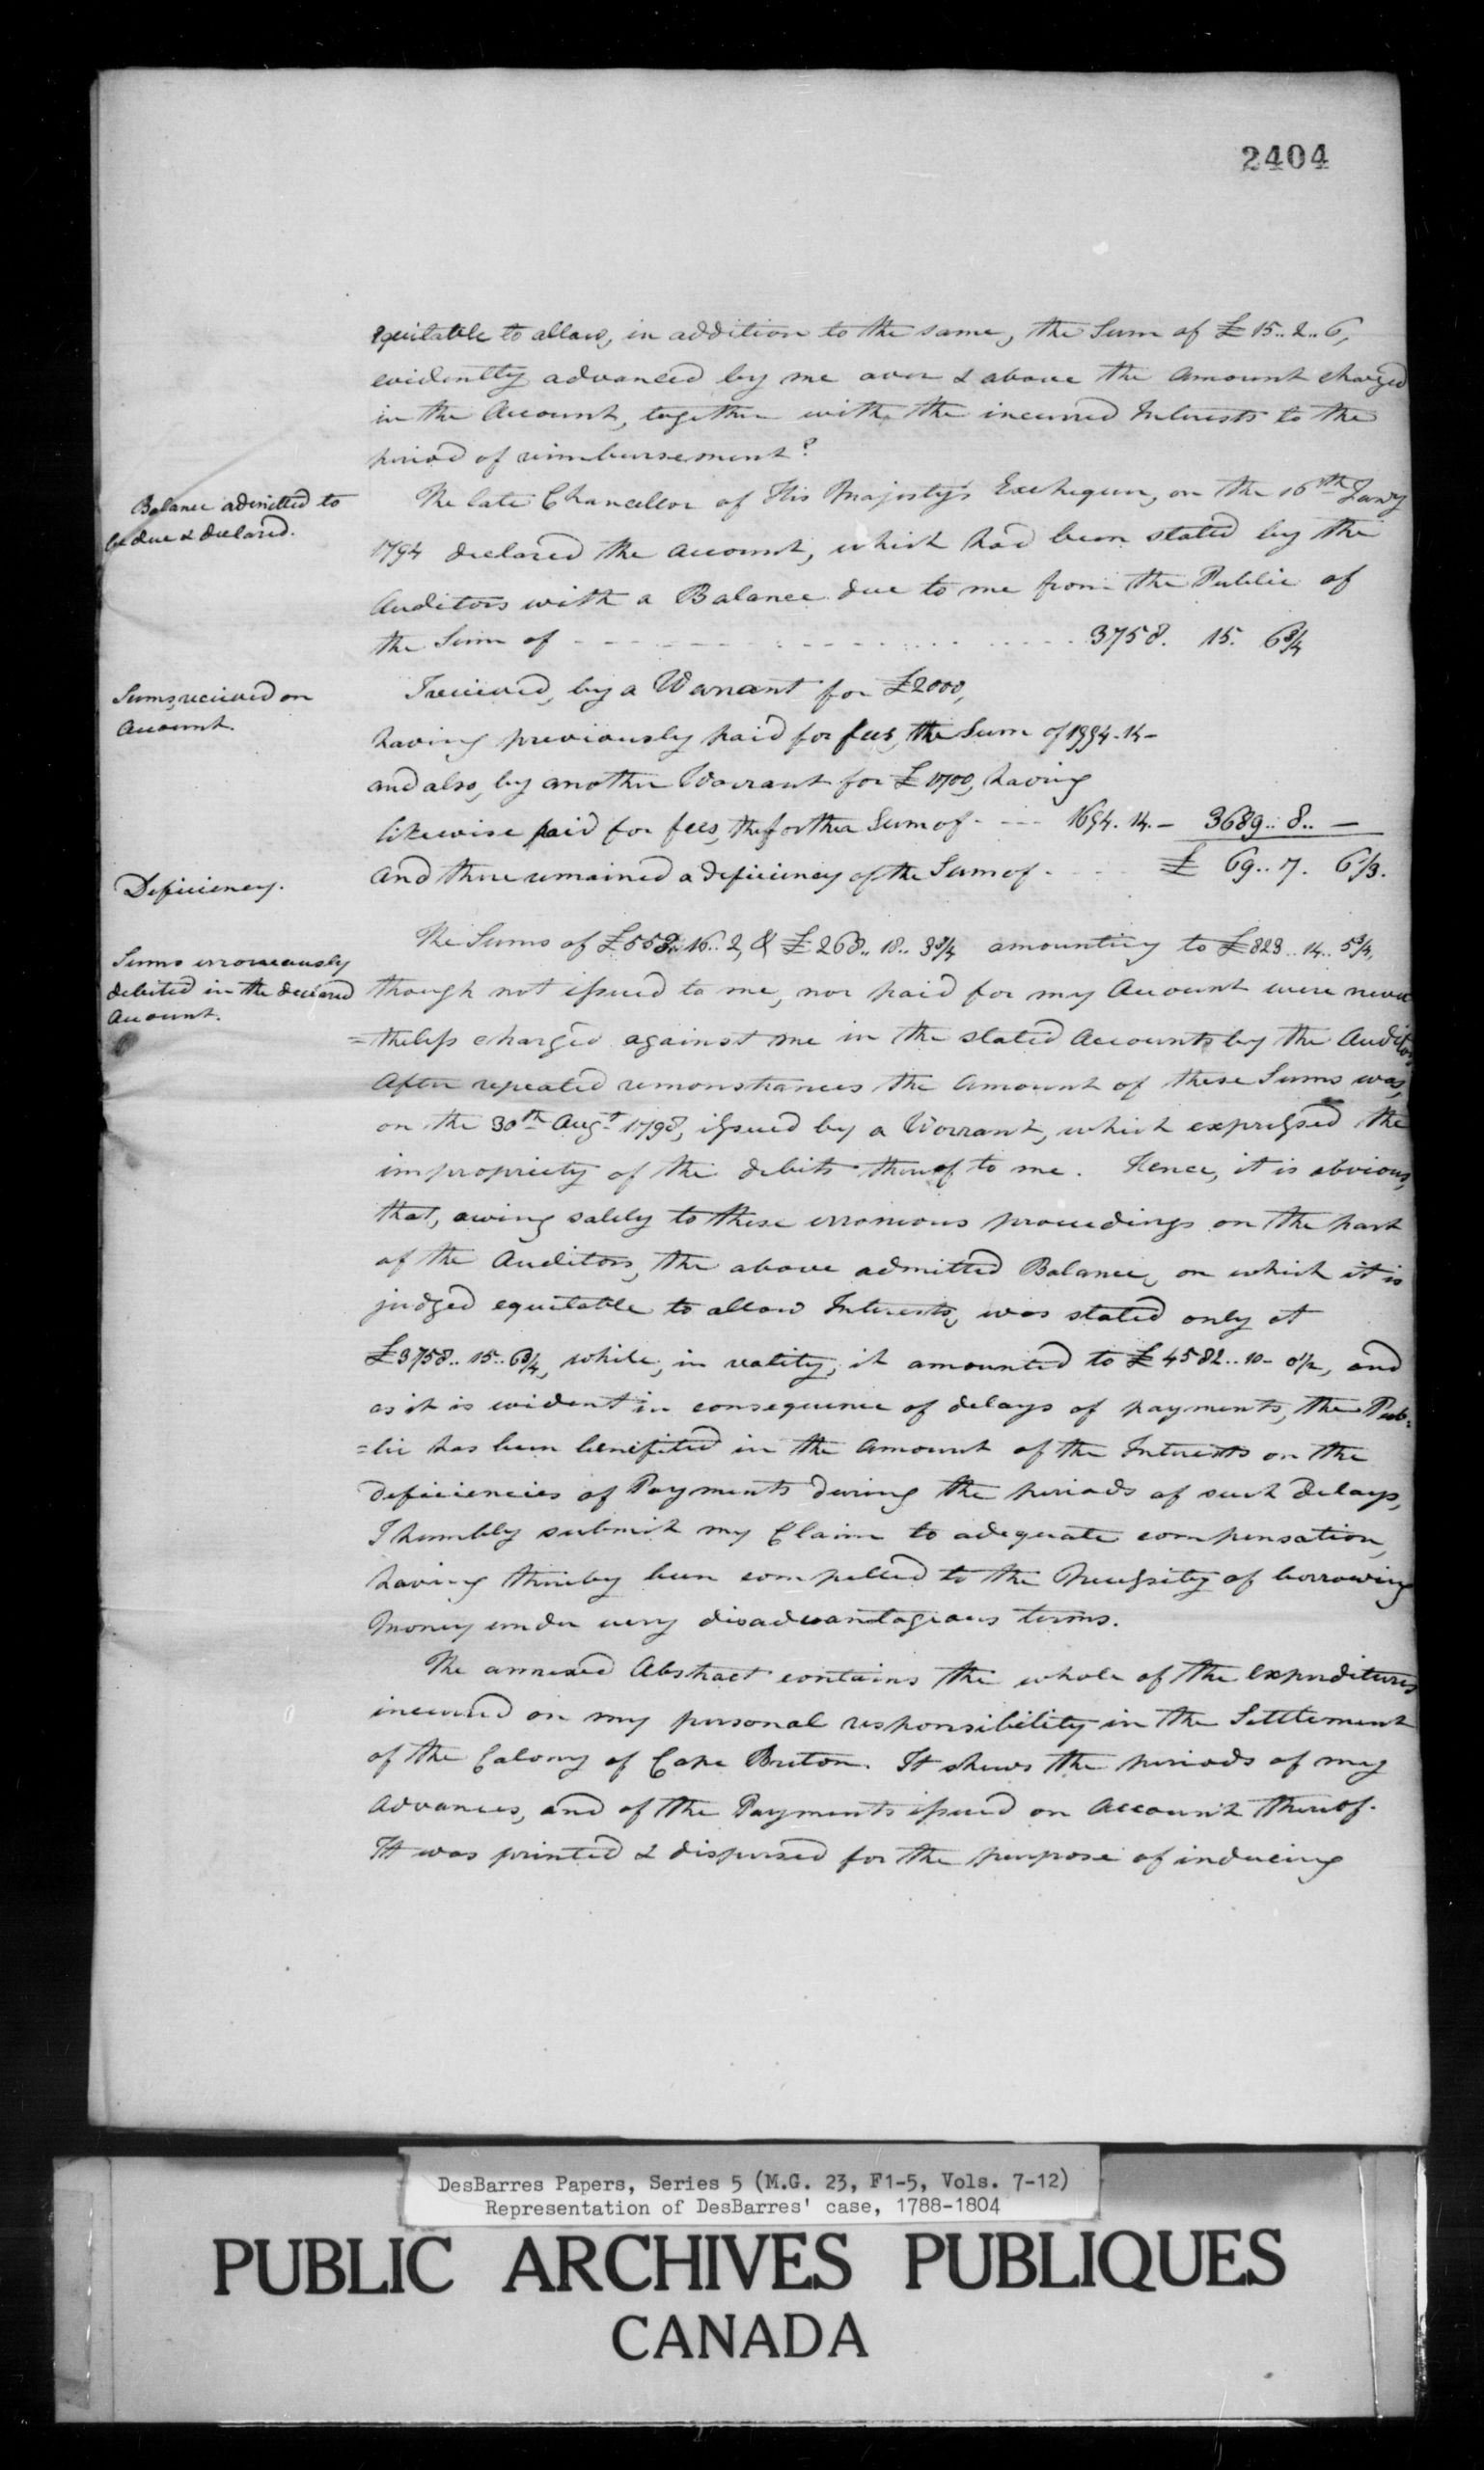 2404
equitable to allow, in addition to the same, the Sum of £15..2..6,
evidently advanced by me over & above the Amount charged
in the Account, together with the incurred Interests to the
period of reimbursement?
Balance admitted to
be due & declared.
The late Chancellor of His Majesty's Exchequer, on the 16th Janry
1794 declared the Account, which had been stated by the
Auditors with a Balance due to me from the Public of
the Sum of - - - 3758. 15. 6¾
Sums received on
Account.
I received, by a Warrant for £2000,
having previously paid for fees, the Sum of 1994.14-
and also, by another Warrant for £1700, having
likewise paid for fees, the further Sum of - - - 1694.14.- 3689..8..-
Deficiency.
And there remained a deficiency of the Sum of - £ 69..7. 6¾.
Sums erroneously
debited in the declared
Account.
The Sums of £553..16..2, & £268..18..3¾ amounting to £823..14..5¾,
though not issued to me, nor paid for my Account were never
=theless charged against me in the stated Accounts by the Auditors
After repeated remonstrances the Amount of these Sums was,
on the 30th Augt 1798, issued by a Warrant, which expressed the
impropriety of the debits thereof to me. Hence, it is obvious,
that, owing solely to these erroneous proceedings on the part
of the Auditors, the above admitted Balance, on which it is
judged equitable to allow Interests, was stated only at
£3758..15..6¾, while, in reality, it amounted to £4582..10-0½, and
as it is evident in consequence of delays of payments, the Pub=
=lic has been benefited in the Amount of the Interests on the
deficiencies of Payments during the periods of such delays,
I humbly submit my Claim to adequate compensation,
having thereby been compelled to the Necessity of borrowing
Money under very disadvantagious terms.
The annexed Abstract contains the whole of the Expenditures
incurred on my personal responsibility in the Settlement
of the Colony of Cape Breton. It shews the periods of my
Advances, and of the Payments issued on Account thereof.
It was printed & dispersed for the purpose of inducing
DesBarres Papers, Series 5 (M.G. 23, F1-5, Vols. 7-12)
Representation of DesBarres' case, 1788-1804
PUBLIC ARCHIVES PUBLIQUES
CANADA